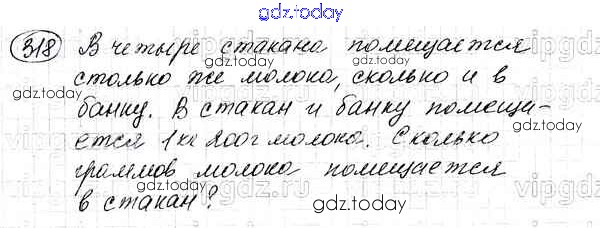 gdz.today
318 В четыре стакана помещается
столько же молока, сколько и в
gdz.today
банку. В стакан и банку помеща-
ется 1 кг 200г молока. Сколько
граммов молока помещается
в стакан?
gdz.today
gdz.today
gdz.today
gdz.today
gdz.today
vipgdz.ru